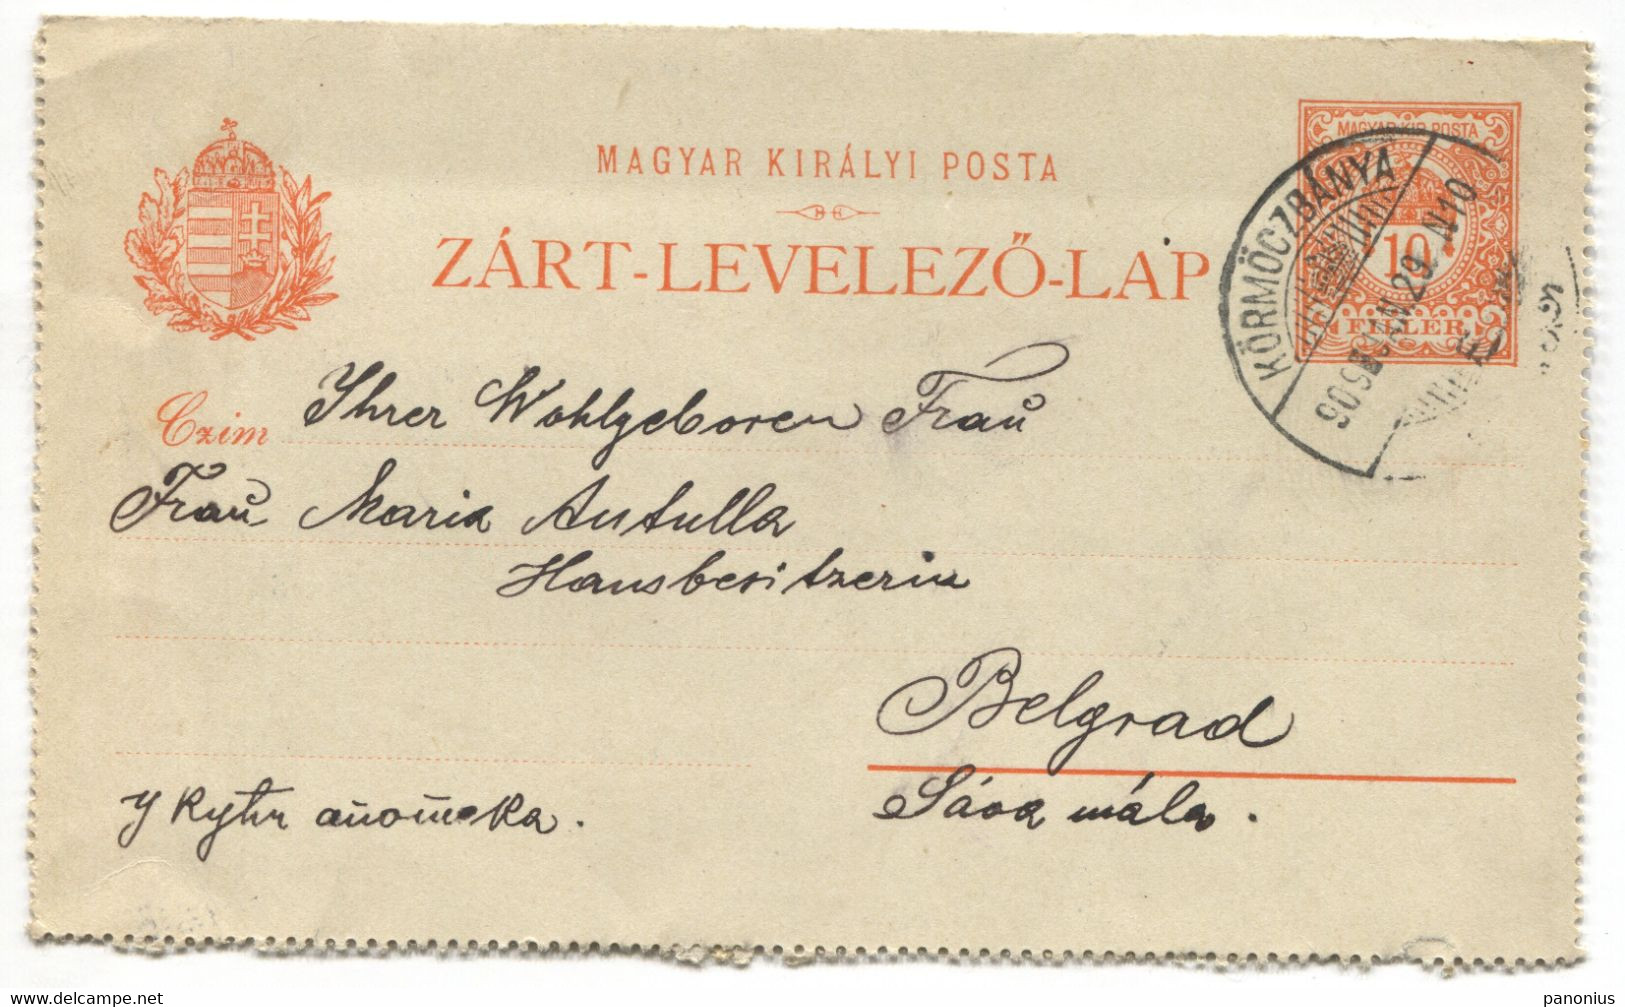 MAGYAR KIRÁLYI POSTA
ZÁRT-LEVELEZŐ-LAP
MAGYAR KIR. POSTA
10
FILLÉR
KÖRMÖCZBÁNYA
905 JUN. 29. N10
Czim Ihrer Wohlgeboren Frau
Frau Maria Antulla
Hausbesitzerin
Belgrad
Sáva mála.
delcampe.net
panonius